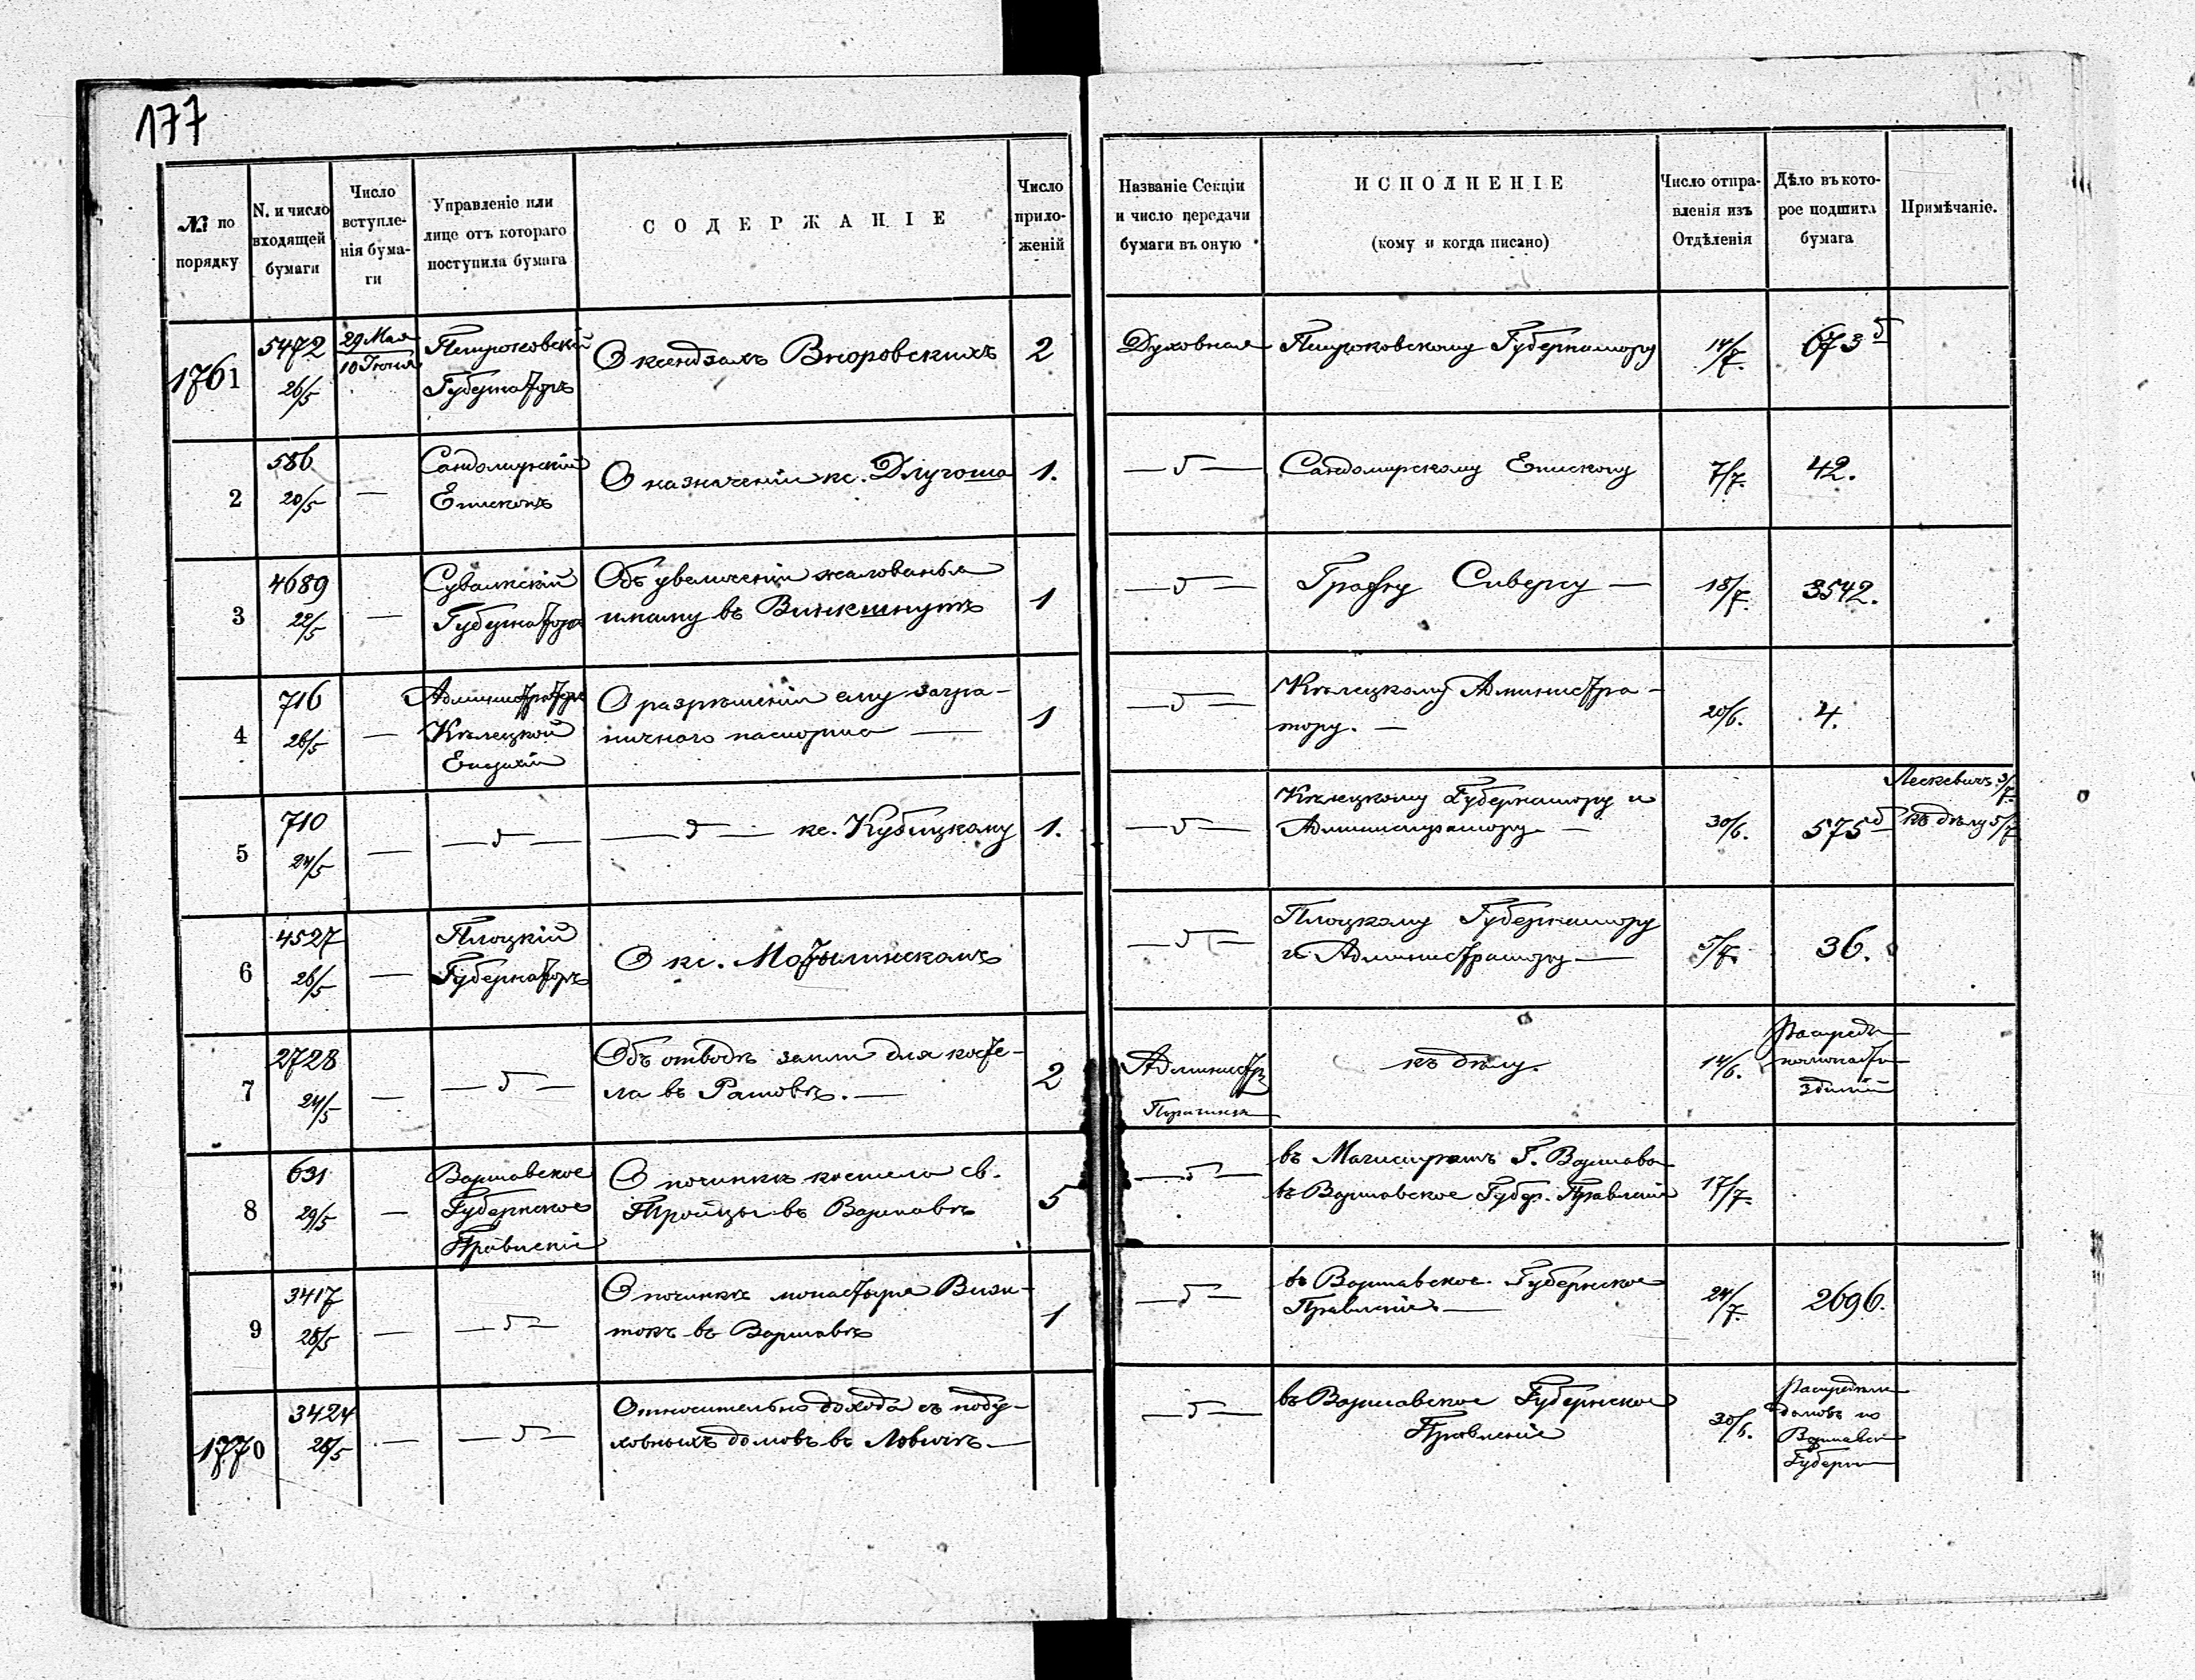 177
№ по порядку
N. и число входящей бумаги
Число вступленія бумаги
Управленіе или лице отъ котораго поступила бумага
СОДЕРЖАНІЕ
Число приложеній
Названіе Секціи и число передачи бумаги въ оную
ИСПОЛНЕНІЕ
(кому и когда писано)
Число отправленія изъ Отдѣленія
Дѣло въ которое подшита бумага
Примѣчаніе.
1761
5472
26/5
29 Мая
10 Іюня
Петроковскій
Губернаторъ
О ксендзахъ
2
Духовная
Петроковскому Губернатору
14/7.
673 д
2
586
20/5
—
Сандомирскій
Епископъ
О назначеніи кс. Длугоша
1.
Сандомирскому Епископу
7/7.
42.
3
4689
22/5
—
Сувалкскій
Губернаторъ
Объ увеличеніи жалованья
въ
1
Графу Сиверсу —
18/7.
3542.
4
716
26/5
—
Администраторъ
Кѣлецкой
Епархіи
О разрѣшеніи ему загра-
ничнаго паспорта —
1
Кѣлецкому Администра-
тору. —
20/6.
4.
5
710
24/5
—
кс. Кубицкому
1.
Кѣлецкому Губернатору и
Администратору —
30/6.
575 д
къ дѣлу 5/7
6
4527
26/5
—
Плоцкій
Губернаторъ
О кс.
Плоцкому Губернатору
и Администратору —
5/7.
36.
7
2728
24/5
—
Объ отводѣ земли для косте-
ла въ —
2
Администр
къ дѣлу.
14/6.
8
631
29/5
—
Варшавское
Губернское
Правленіе
О починкѣ костела св.
Троицы въ Варшавѣ
5
въ Магистратъ Г. Варшавы
въ Варшавское Губер. Правленіе
17/7.
9
3417
28/5
—
О починкѣ монастыря Визи-
токъ въ Варшавѣ
1
въ Варшавское Губернское
Правленіе —
24/7.
2696.
1770
3424
28/5
—
Относительно дохода съ поду-
ховныхъ домовъ въ Ловичѣ —
въ Варшавское Губернское
Правленіе
30/6.
домовъ по
Варшавск
Губерн